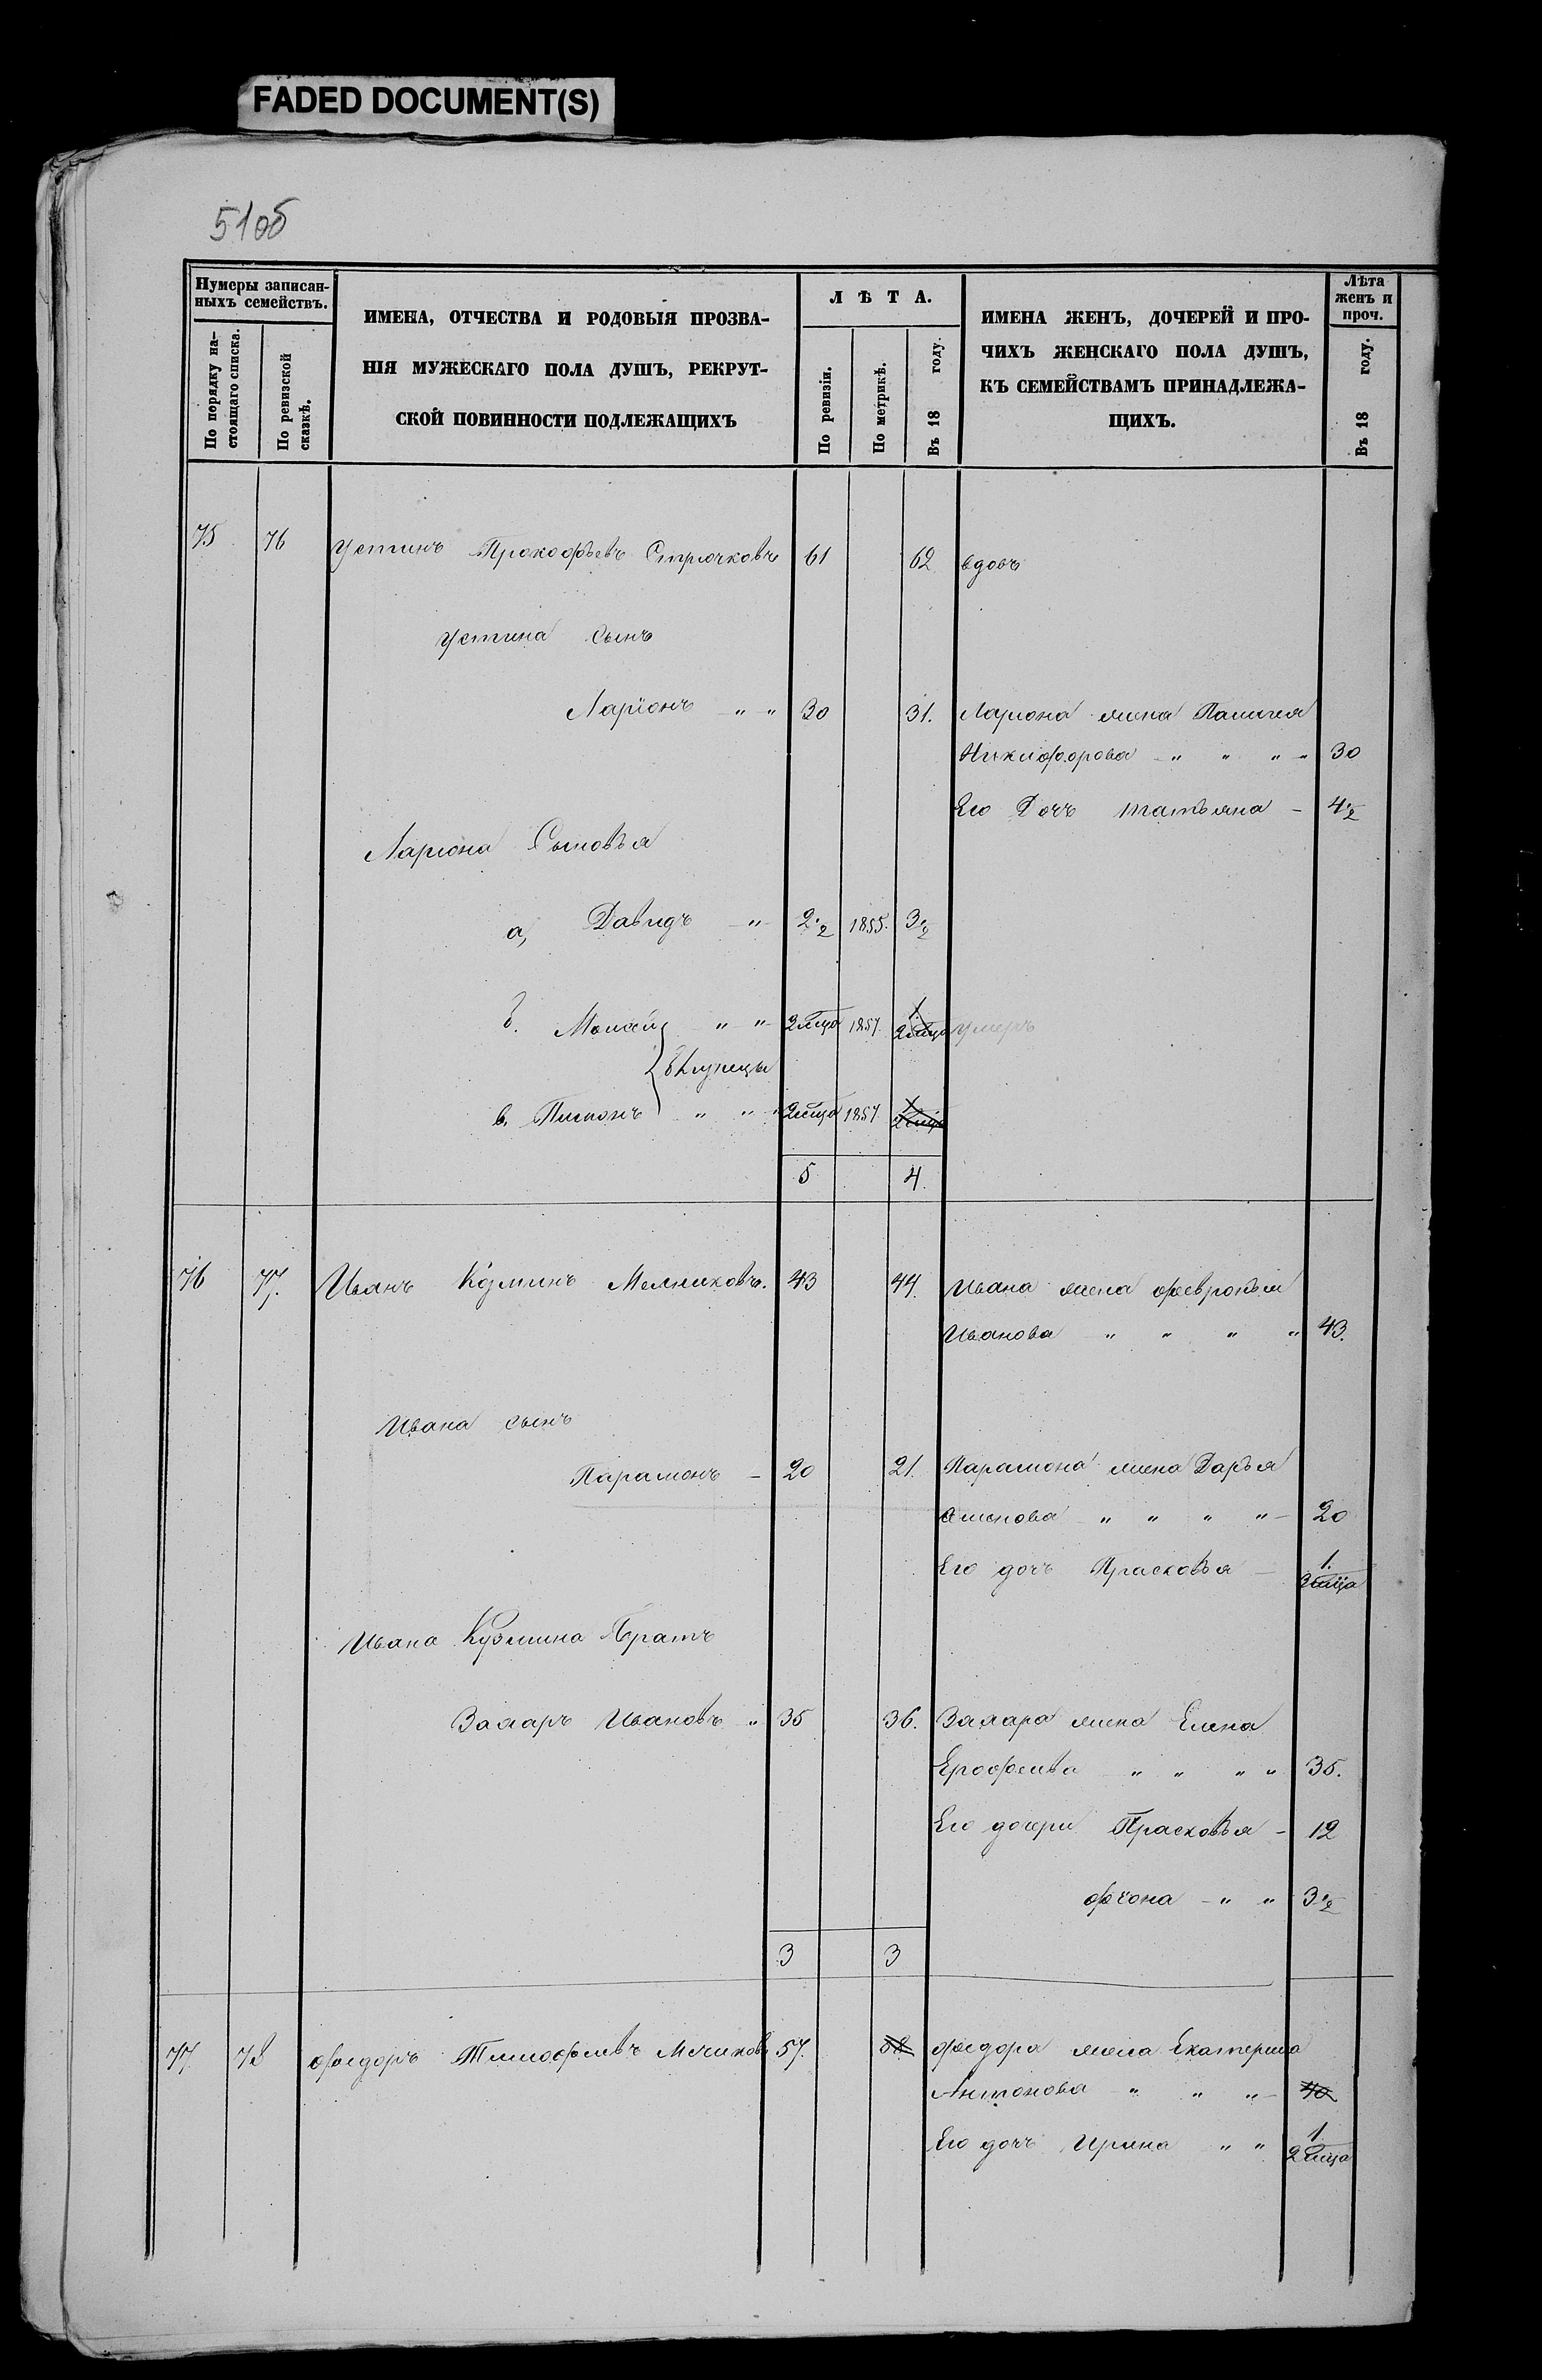 FADED DOCUMENT(S)
51об
Нумеры записан-
ныхъ семействъ.
По порядку на-
стоящаго списка.
По ревизской
сказкѣ.
ИМЕНА, ОТЧЕСТВА И РОДОВЫЯ ПРОЗВА-
НІЯ МУЖЕСКАГО ПОЛА ДУШЪ, РЕКРУТ-
СКОЙ ПОВИННОСТИ ПОДЛЕЖАЩИХЪ
Л Ѣ Т А.
По ревизіи.
По метрикѣ.
Въ 18 году.
ИМЕНА ЖЕНЪ, ДОЧЕРЕЙ И ПРО-
ЧИХЪ ЖЕНСКАГО ПОЛА ДУШЪ,
КЪ СЕМЕЙСТВАМЪ ПРИНАДЛЕЖА-
ЩИХЪ.
Лѣта
женъ и
проч.
Въ 18 году.
75 76 Устинъ Прокофьевъ Стрючковъ 61 62 вдовъ
Устина сынъ
Ларіонъ " " 30 31. Лариона жена Палагея
Никифорова " " " " 30
Его Дочь татьяна - 4½
Лариона Сыновья
а, Давидъ " 2½ 1855. 3½
б. " " 2 мца 1857. 1. 2 мца умеръ
близнецы
в. " " 2 мца 1857 1 2 мца
5 4.
76 77. Иванъ Козминъ Мелниковъ. 43 44. Ивана жена февронья
Иванова " " " " 43.
Ивана сынъ
Парамонъ - 20 21. Парамона жена Дарья
" " " " 20
Его дочь Прасковья - 1. 3 мца
Ивана Кузмина Братъ
Захаръ Ивановъ " 35 36. Захара жена Елена
Ерофеива " " " " 35.
Его дочери Прасковья - 12
" " 3½
3 3
77. 78 федоръ Тимофеивъ 57. 58 федора жена Екатерина
Антонова " " " 40
Его дочь Ирина " " 1 2 мца